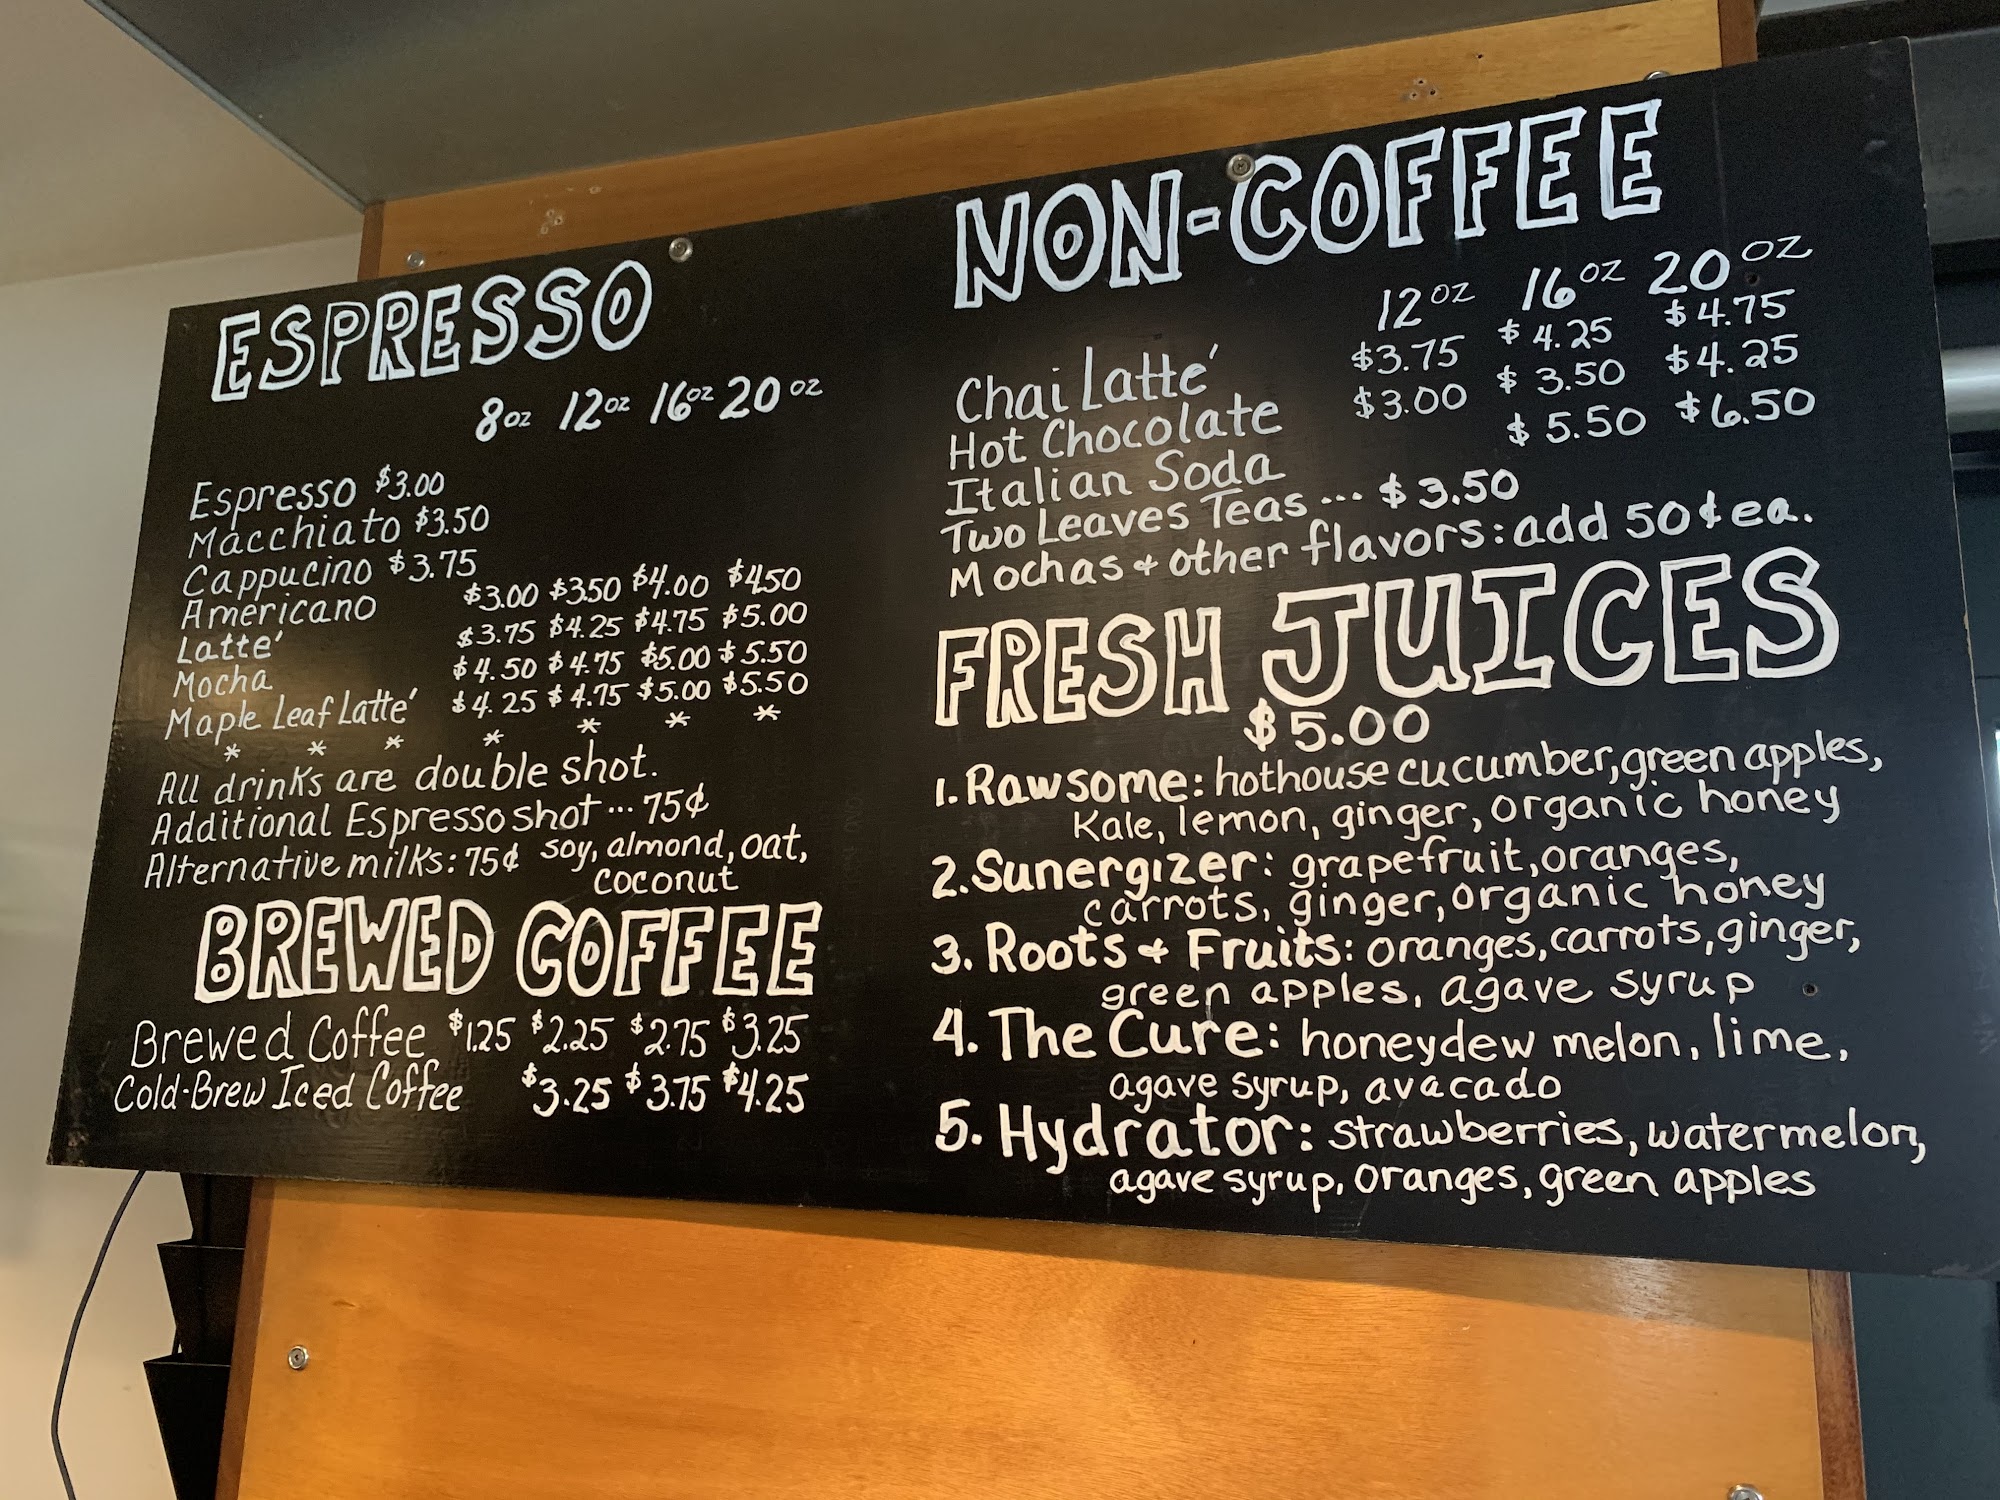 ESPRESSO
8oz 12oz 16oz 20oz
Espresso $3.00
Macchiato $3.50
Cappucino $3.75
Americano $3.00 $3.50 $4.00 $4.50
Latte´ $3.75 $4.25 $4.75 $5.00
Mocha $4.50 $4.75 $5.00 $5.50
Maple Leaf Latte´ $4.25 $4.75 $5.00 $5.50
* * * * * * *
All drinks are double shot.
Additional Espresso shot ... 75¢
Alternative milks: 75¢ soy, almond, oat,
coconut
BREWED COFFEE
Brewed Coffee $1.25 $2.25 $2.75 $3.25
Cold-Brew Iced Coffee $3.25 $3.75 $4.25
NON-COFFEE
12oz 16oz 20oz
Chai Latte´ $3.75 $4.25 $4.75
Hot Chocolate $3.00 $3.50 $4.25
Italian Soda $5.50 $6.50
Two Leaves Teas ... $3.50
Mochas + other flavors: add 50¢ ea.
FRESH JUICES
$5.00
1. Rawsome: hothouse cucumber, green apples,
Kale, lemon, ginger, organic honey
2. Sunergizer: grapefruit, oranges,
carrots, ginger, organic honey
3. Roots + Fruits: oranges, carrots, ginger,
green apples, agave syrup
4. The Cure: honeydew melon, lime,
agave syrup, avacado
5. Hydrator: strawberries, watermelon,
agave syrup, oranges, green apples